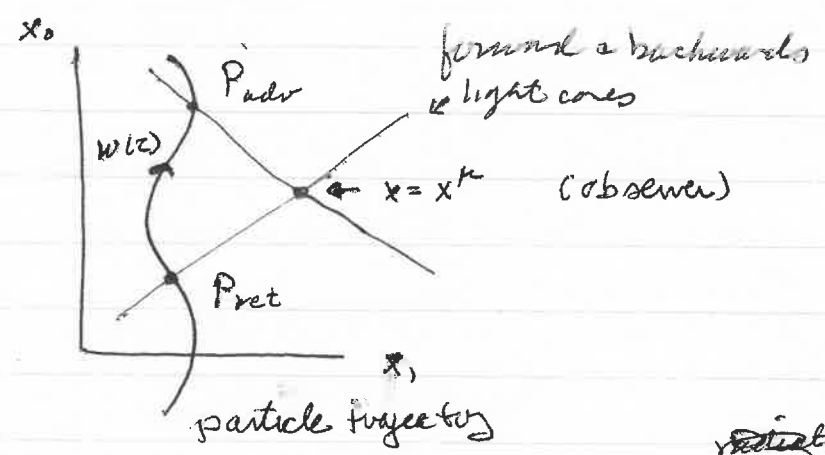 x₀
forward & backwards
light cones
P_adv
w(τ)
x = x^μ (observer)
P_ret
x₁
particle trajectory